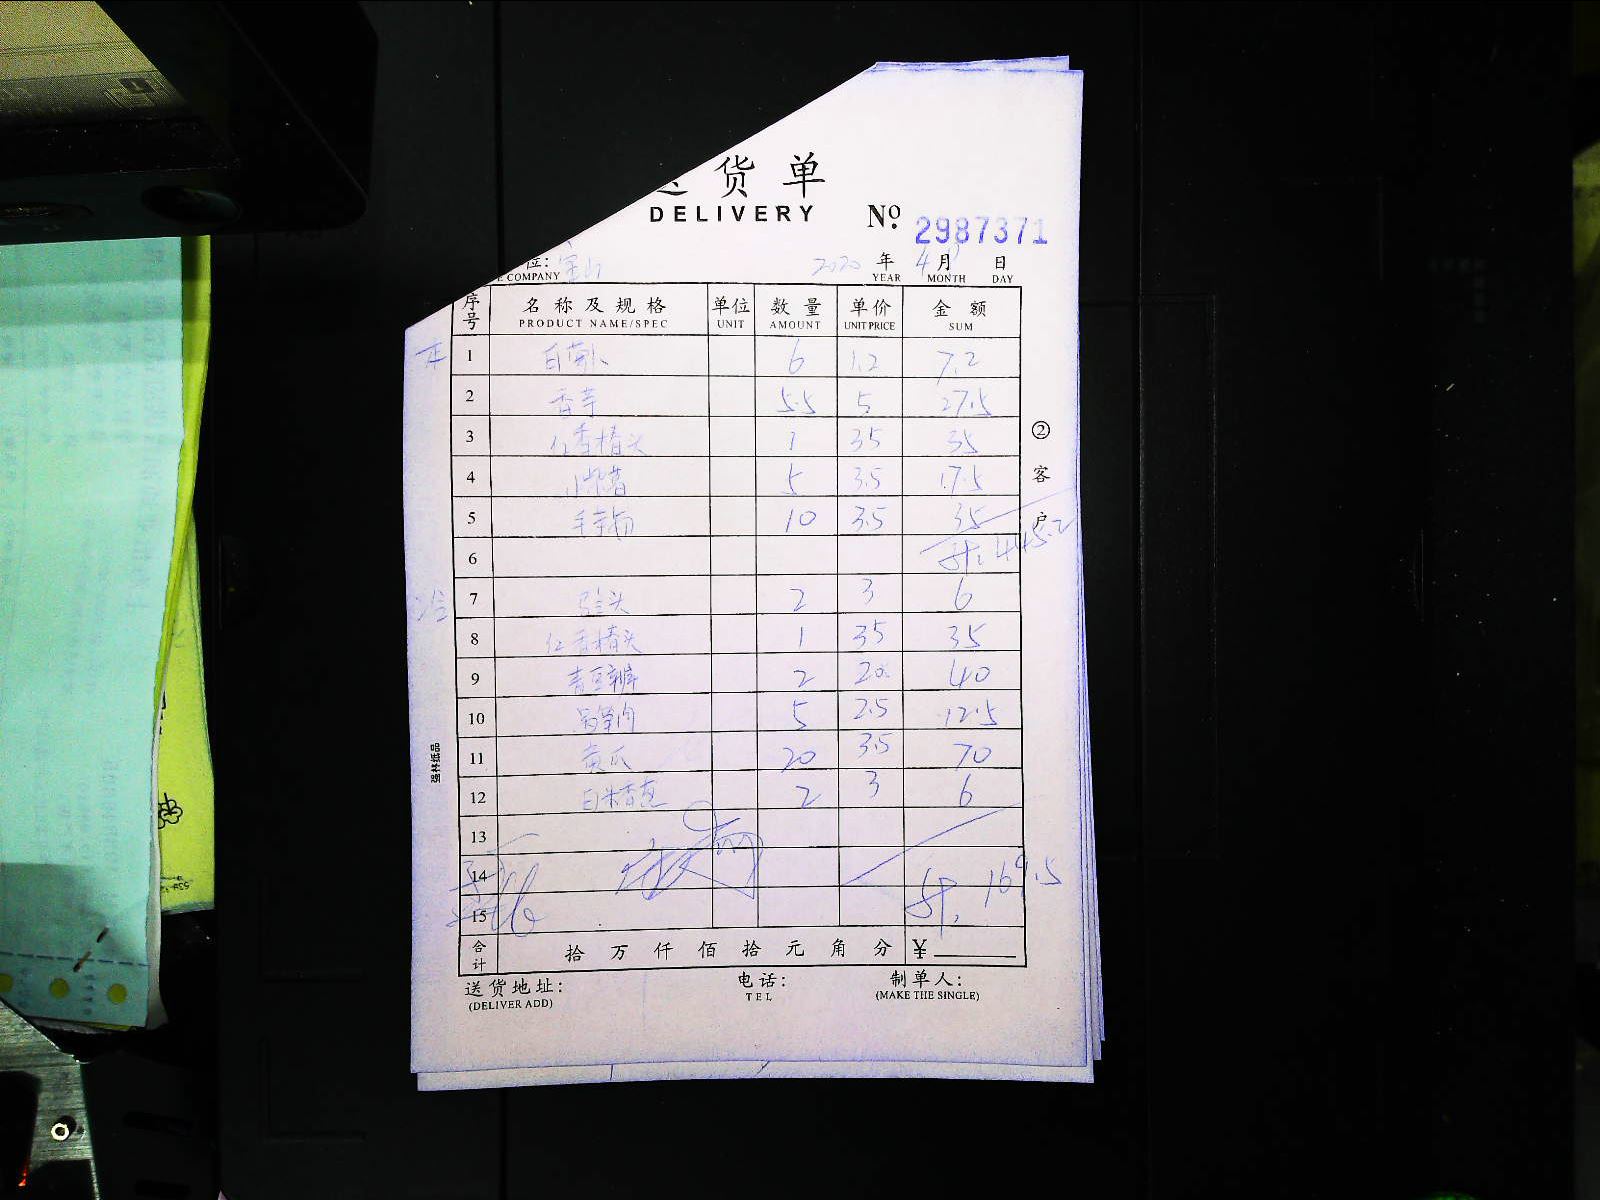 货单
DELIVERY
№ 2987371
位: 宝山 2020 年 4月 日
E COMPANY YEAR MONTH DAY
序号 名称及规格 单位 数量 单价 金额
PRODUCT NAME/SPEC UNIT AMOUNT UNIT PRICE SUM
1 白萝卜 6 1.2 7.2
2 香芋 5.5 5 27.5
3 红香椿头 1 35 35
4 小紫薯 5 3.5 17.5
5 10 3.5 35
6 计: 445.2
冷 7 头 2 3 6
8 红香椿头 1 35 35
9 青豆瓣 2 20 40
10 5 2.5 12.5
11 黄瓜 20 3.5 70
12 白米香葱 2 3 6
13
14 计: 169.5
15
合计 拾 万 仟 佰 拾 元 角 分 ¥
送货地址: 电话: 制单人:
(DELIVER ADD) TEL (MAKE THE SINGLE)
②客户
强林纸品